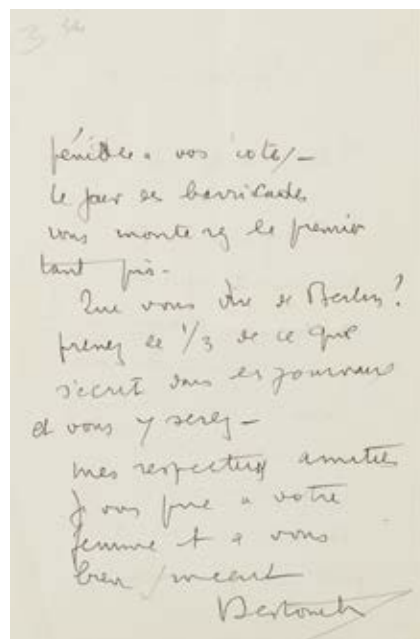 3
à vos côtés /-
le jour des barricades
vous monterez le premier
tant pis -
Que vous dire de Berlin ?
prenez le 1/3 de ce que
s'écrit dans les journaux
et vous y serez -
mes respectueux amitiés
je vous prie à votre
femme et à vous
bien